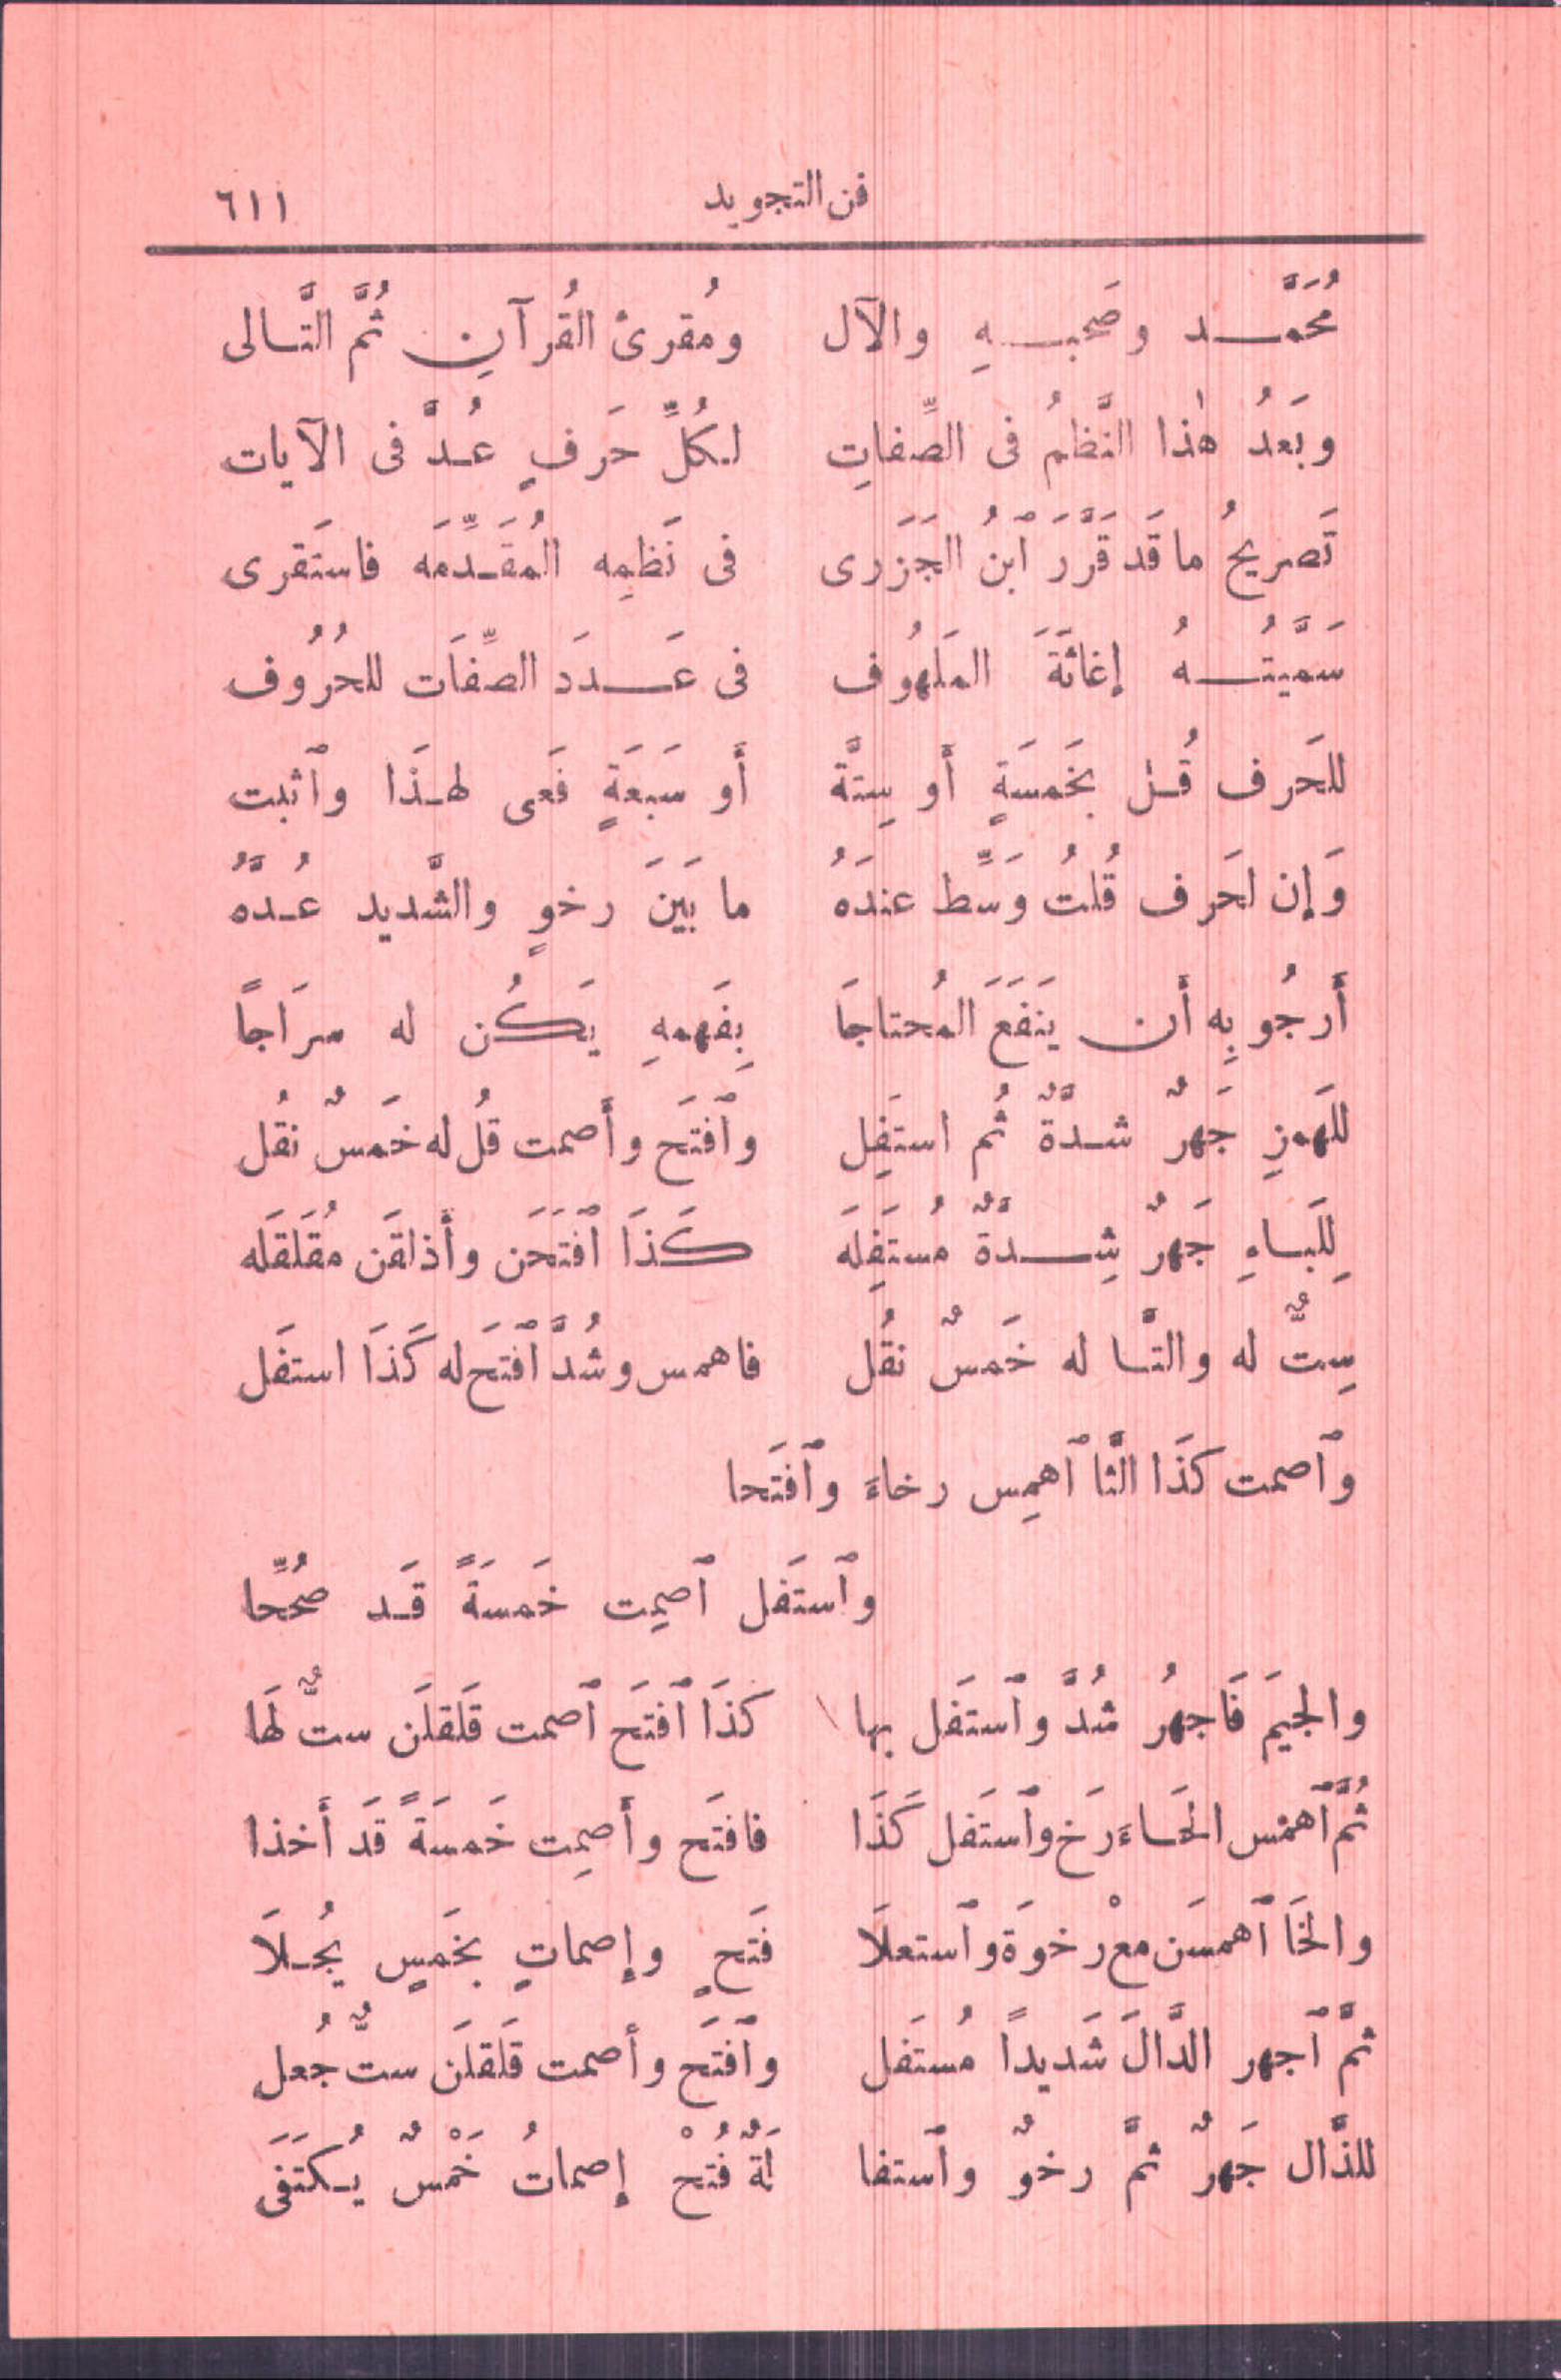 فن التجويد ٦١١
مُحَمَّـد وصَحبـهِ والآل ومُقرئُ القُرآنِ ثُمَّ التَّـالى
وبَعدُ هٰذا النَّظمُ فى الصِّفاتِ لـكُلِّ حَرفٍ عُـدَّ فى الآيات
تَصريحُ ما قَد قَرَّرَ ٱبنُ الجَزَرى فى نَظمِه المُقَـدِّمَه فاستَقرى
سَمَّيتُـهُ إغاثَةَ المَلهُوف فى عَـدَدَ الصِّفَات للحُرُوف
للحَرف قُـل بخَمسَةٍ أو سِتَّة أَو سَبعَةٍ فَعى لهـذَا وٱثبت
وَإن لحَرف قُلتُ وَسِّط عندَهُ ما بَينَ رخوٍ والشَّديد عُـدَّهُ
أَرجُو بِه أَن يَنفَعَ المُحتاجَا بِفَهمهِ يَكُن له سرَاجًا
للَهمزِ جَهرٌ شـدَّةٌ ثُم استَفِل وٱفتَح وأَصمت قُل له خَمسٌ نقُل
لِلَبـاءِ جَهرٌ شِـدَّةٌ مُستَفِلَه كَذَا ٱفتَحَن وأَذلقَن مُقَلقَله
سِتٌّ له والتَّـا له خَمسٌ نقُل فاهمس وشُدَّ ٱفتَح له كَذَا استفَل
وٱصمت كذَا الثَّا ٱهمِس رخاءَ وٱفتَحا
وٱستَفل ٱصمِت خَمسَةً قَـد صُحِّحا
والجيَم فَاجهرُ شُدَّ وٱستَفل بها كَذَا ٱفتَح ٱصمت قَلقلَن ستٌّ لهَا
ثُمَّ ٱهمس الحَـاءَ رَخ وٱستَفل كَذَا فافتَح وأَصمِت خَمسَةً قَد أَخذا
والخَا ٱهمسَن معْ رخوَة وٱستعلَا فَتحٍ وإصماتٍ بخَمسٍ يُجـلَا
ثمَّ ٱجهر الدَّالَ شَديداً مُستَفل وٱفتَح وأصمت قَلقلَن ستٌّ جُعل
للذَّال جَهرٌ ثمَّ رخوٌ وٱستفا لَةٌ فُتحْ إصماتُ خَمْسٌ يُـكتَفَى